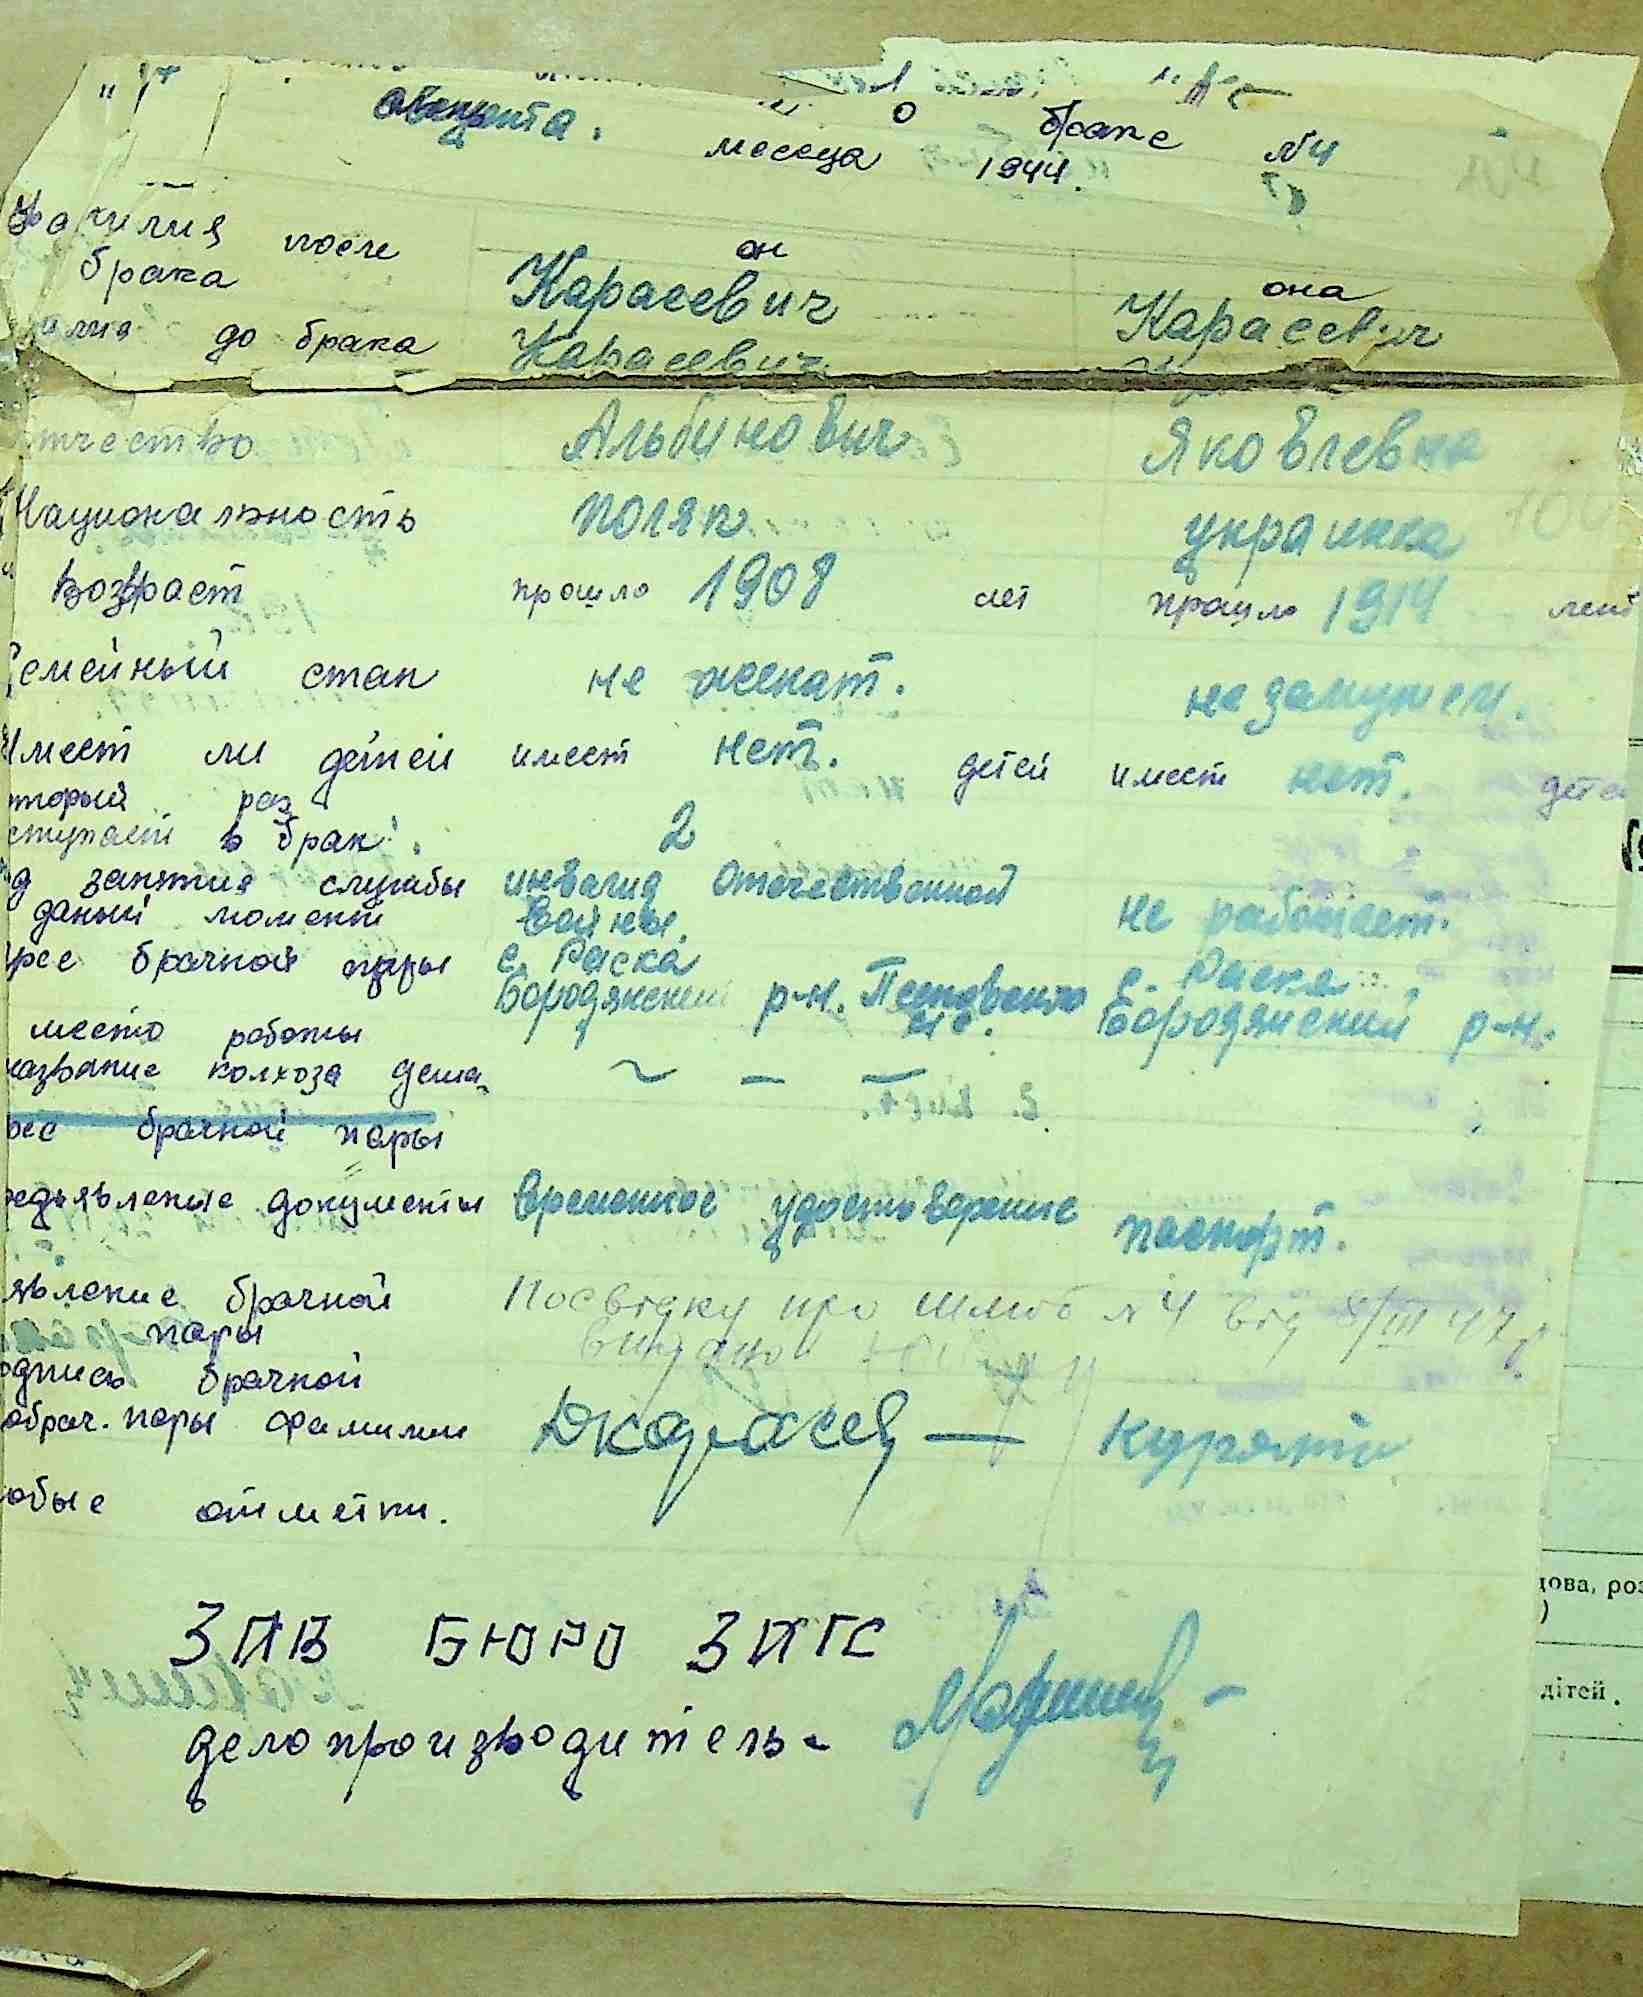 о браке №4
месеца 1944.
он она
Фамилия после брака Карасевич Карасевич
до брака Карасевич
тчество Альбинович Яковлевна
Национальность поляк украинка
Возраст прошло 1908 лет прошло 1914 лет
Семейный стан не женат. не замужем.
Имеет ли детей имеет нет. детей имеет нет. дете
оторый раз
ступает в брак. 2
д занятия службы инвалид Отечественной
даный момент войны. не работает.
рес брачной пары с. Раска с. Раска
Бородянский р-н. Бородянский р-н.
место работы
название колхоза
рес брачной пары
редьявленые документы временное удостоверение паспорт.
явление брачной пары Посвідку про шлюб №4 від 8/III 47
одпись брачной
обрач. пары фамилии
обые отметки.
ЗАВ БЮРО ЗАГС
делопроизводитель-
дова, роз
)
дітей.